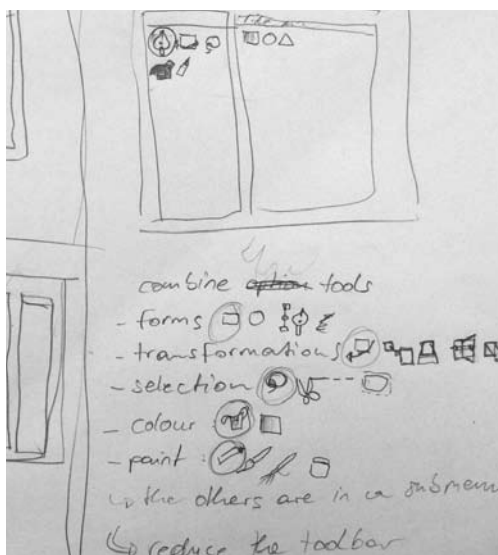 combine option tools
- forms
- transformations
- selection
- colour :
- paint :
↳ the others are in a submenu
↳ reduce the toolbar